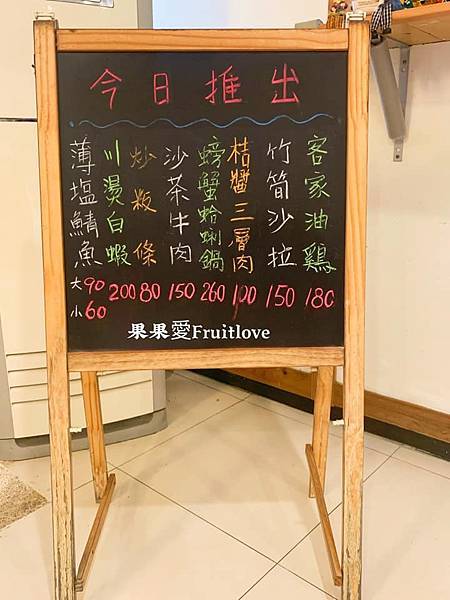 今日推出
客家油鷄 180
竹筍沙拉 150
桔醬三層肉 100
螃蟹蛤蜊鍋 260
沙茶牛肉 150
炒粄條 80
川燙白蝦 200
薄塩鯖魚 大90 小60
果果愛Fruitlove